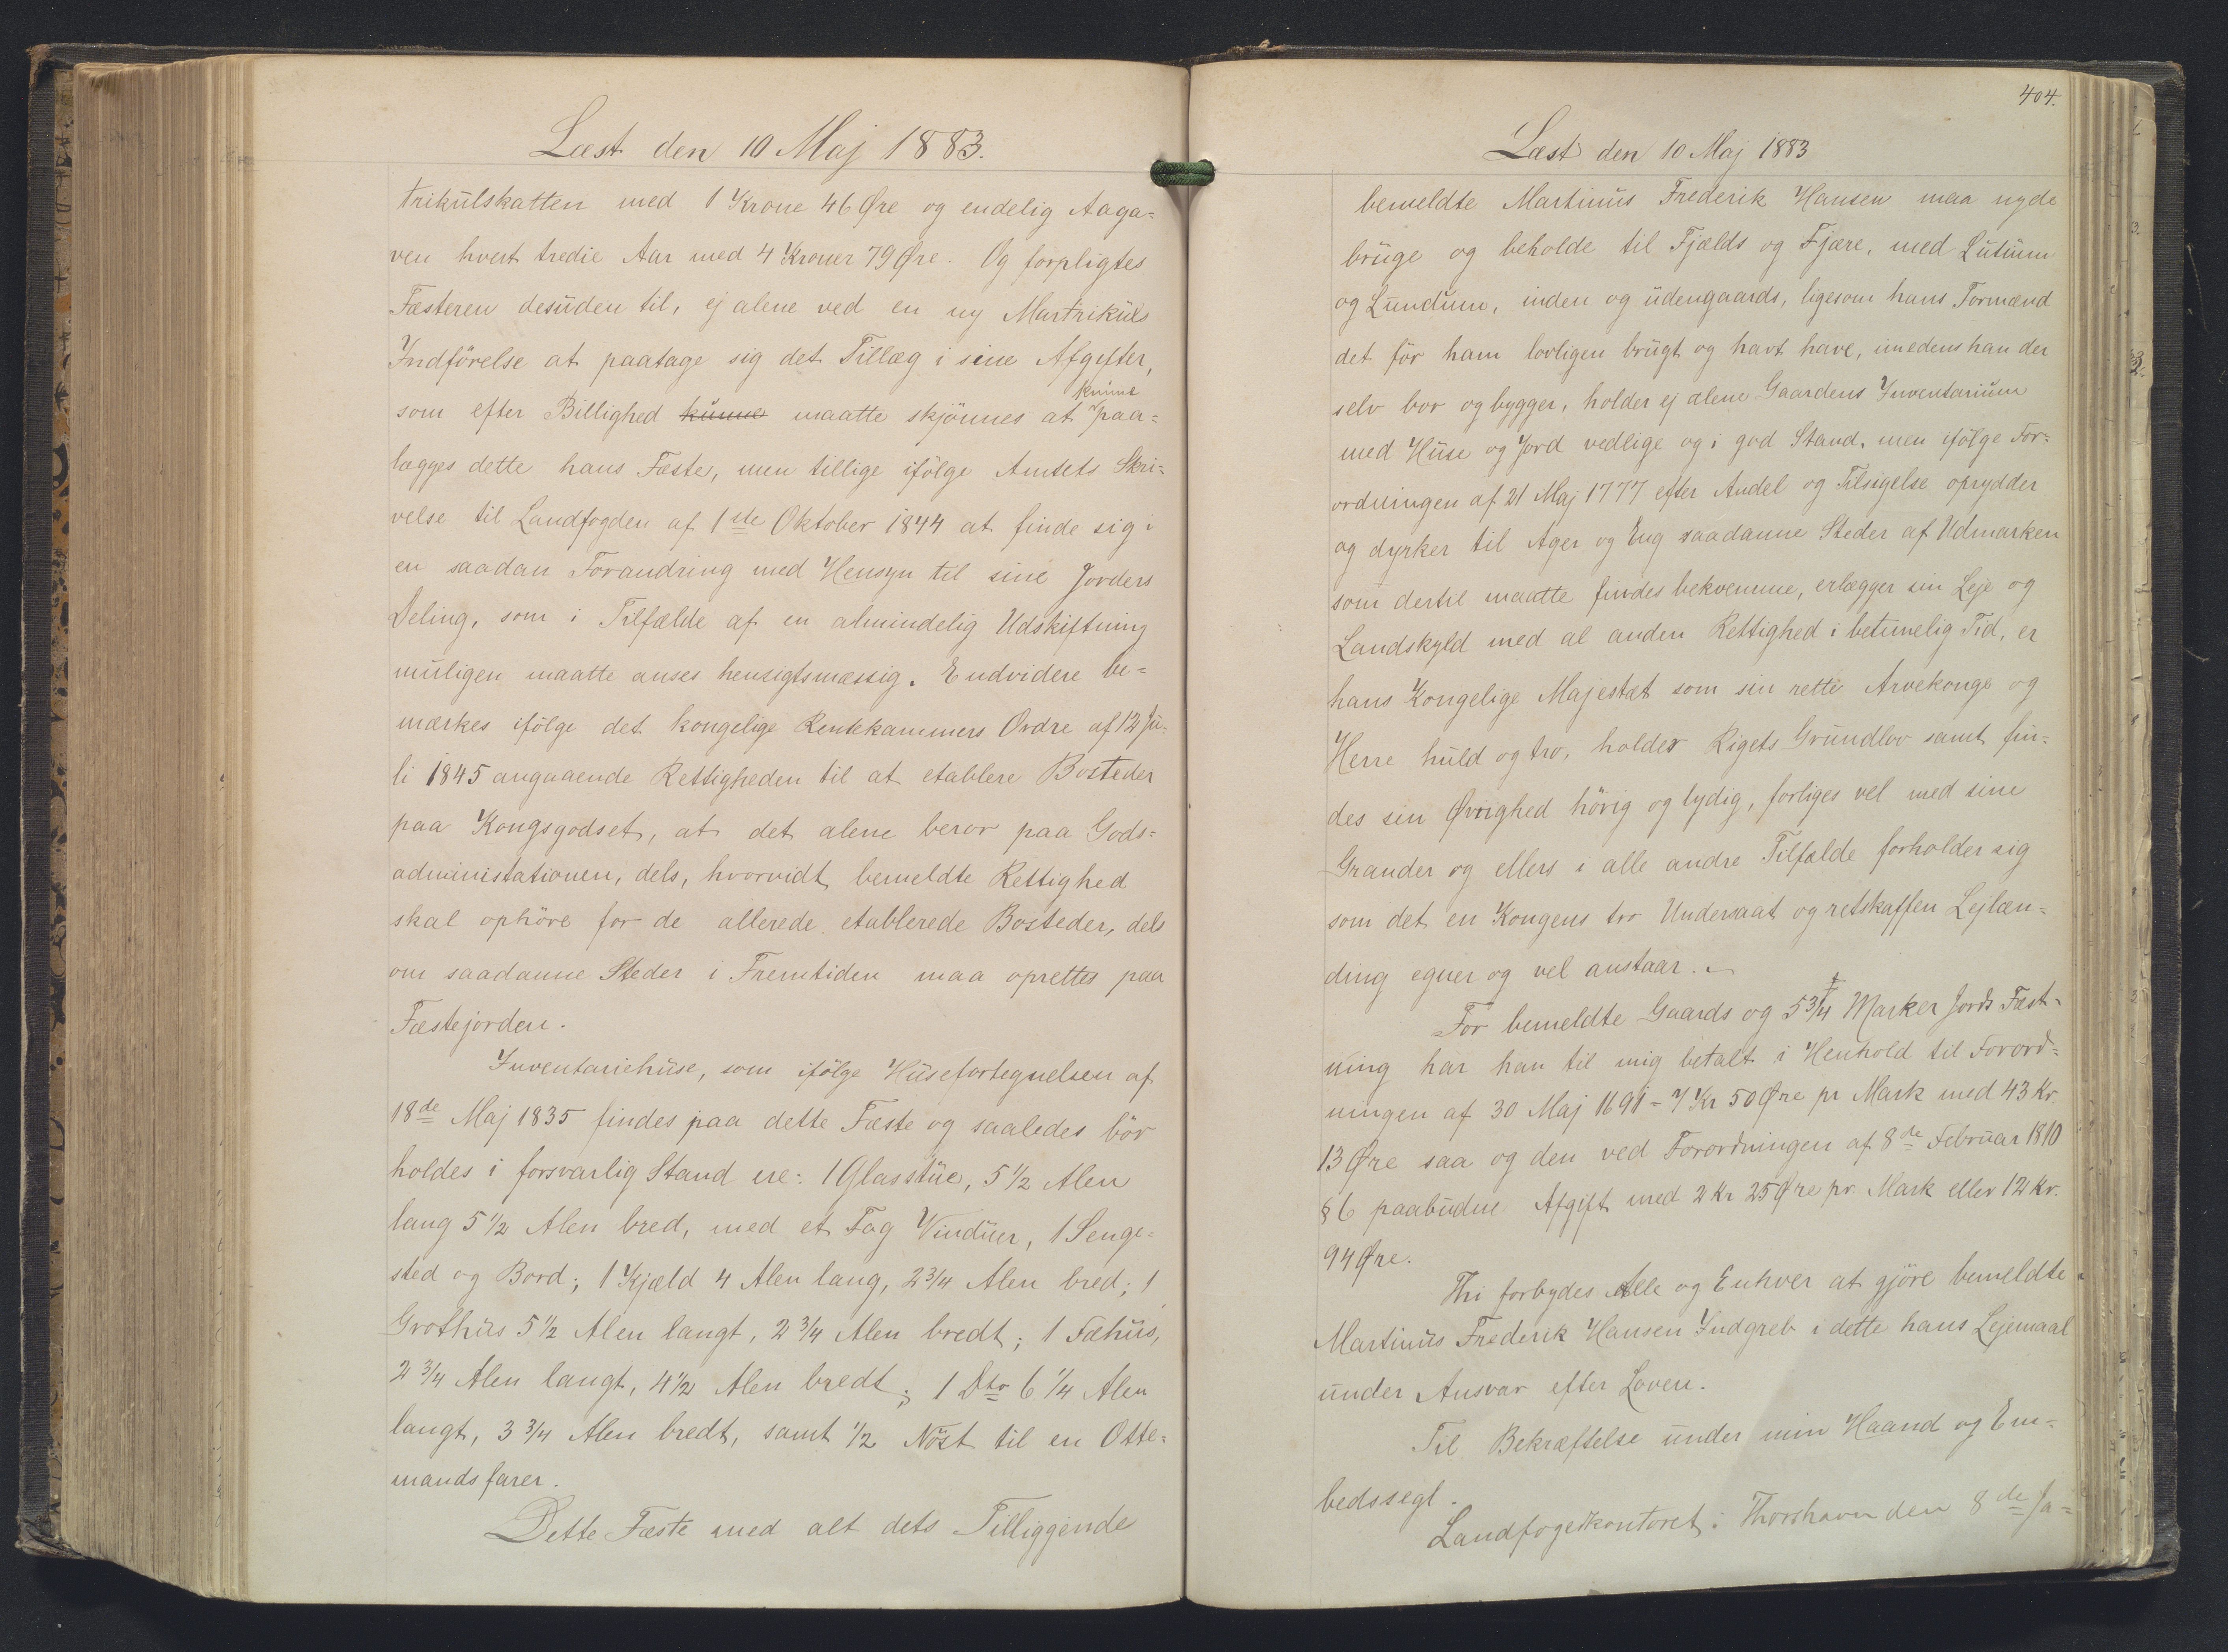 Læst den 10 Maj 1883.
trikulskatten med 1 Krone 46 Øre og endelig Aaga=
ven hvert tredie Aar med 4 Kroner 79 Øre. Og forpligtes
Fæsteren desuden til, ej alene ved en ny Martrikuls
Indförelse at paatage sig det Tillæg i sine Afgifter,
som efter Billighed kunne maatte skjönnes at kunne paa=
lægges dette hans Fæste, men tillige ifölge Amtets Skri=
velse til Landfogden af 1ste Oktober 1844 at finde sig i
en saadan Forandring med Hensyn til sine Jorders
Deling, som i Tilfælde af en almindelig Udskiftning
muligen maatte anses hensigtsmæssig. Endvidere be=
mærkes ifölge det kongelige Rentekammers Ordre af 12 Ju=
li 1845 angaaende Rettigheden til at etablere Bosteder
paa Kongsgodset, at det alene beror paa Gods=
administationen, dels, hvorvidt bemeldte Rettighed
skal ophöre for de allerede etablerede Bosteder, dels
om saadanne Steder i Fremtiden maa oprettes paa
Fæstejorden.
Inventariehuse, som ifölge Husefortegnelsen af
18de Maj 1835 findes paa dette Fæste og saaledes bör
holdes i forsvarlig Stand ere: 1 Glasstue, 5 1/2 Alen
lang 5 1/2 Alen bred, med et Fag Vinduer, 1 Senge=
sted og Bord; 1 Kjæld 4 Alen lang, 2 3/4 Alen bred; 1
Grothus 5 1/2 Alen langt, 2 3/4 Alen bredt; 1 Fæhus,
2 3/4 Alen langt, 4 1/2 Alen bredt; 1 Dto 6 1/4 Alen
langt, 3 3/4 Alen bredt, samt 1/2 Nöst til en Otte=
mandsfarer.
Dette Fæste med alt dets Tilliggende
404.
Læst den 10 Maj 1883
bemeldte Martinus Frederik Hansen maa nyde
bruge og beholde til Fjælds og Fjære, med Lutum
og Lundum, inden og udengaards, ligesom hans Formænd
det för ham lovligen brugt og havt have, imedens han der
selv bor og bygger, holder ej alene Gaardens Inventarium
med Huse og Jord vedlige og i god Stand, men ifölge For=
ordningen af 21 Maj 1777 efter Andel og Tilsigelse oprydder
og dyrker til Ager og Eng saadanne Steder af Udmarken
som dertil maatte findes bekvemme, erlægger sin Leje og
Landskyld med al anden Rettighed i betimelig Tid, er
hans Kongelige Majestæt som sin rette Arvekonge og
Herre huld og tro, holder Rigets Grundlov samt fin=
des sin Øvrighed hörig og lydig, forliges vel med sine
Grander og ellers i alle andre Tilfælde forholder sig
som det en Kongens tro Undersaat og retskaffen Lejlæn=
ding egner og vel anstaar.
For bemeldte Gaards og 5 3/4 Marker Jords Fæst=
ning har han til mig betalt i Henhold til Forord=
ningen af 30 Maj 1691 = 7 Kr 50 Øre pr Mark med 43 Kr
13 Øre saa og den ved Forordningen af 8de Februar 1810
§ 6 paabudne Afgift med 2 Kr 25 Øre pr Mark eller 12 Kr.
94 Øre.
Thi forbydes Alle og Enhver at gjöre bemeldte
Martinus Frederik Hansen Indgreb i dette hans Lejemaal
under Ansvar efter Loven.
Til Bekræftelse under min Haand og Em=
bedssegl.
Landfogedkontoret i Thorshavn den 8de Ja=